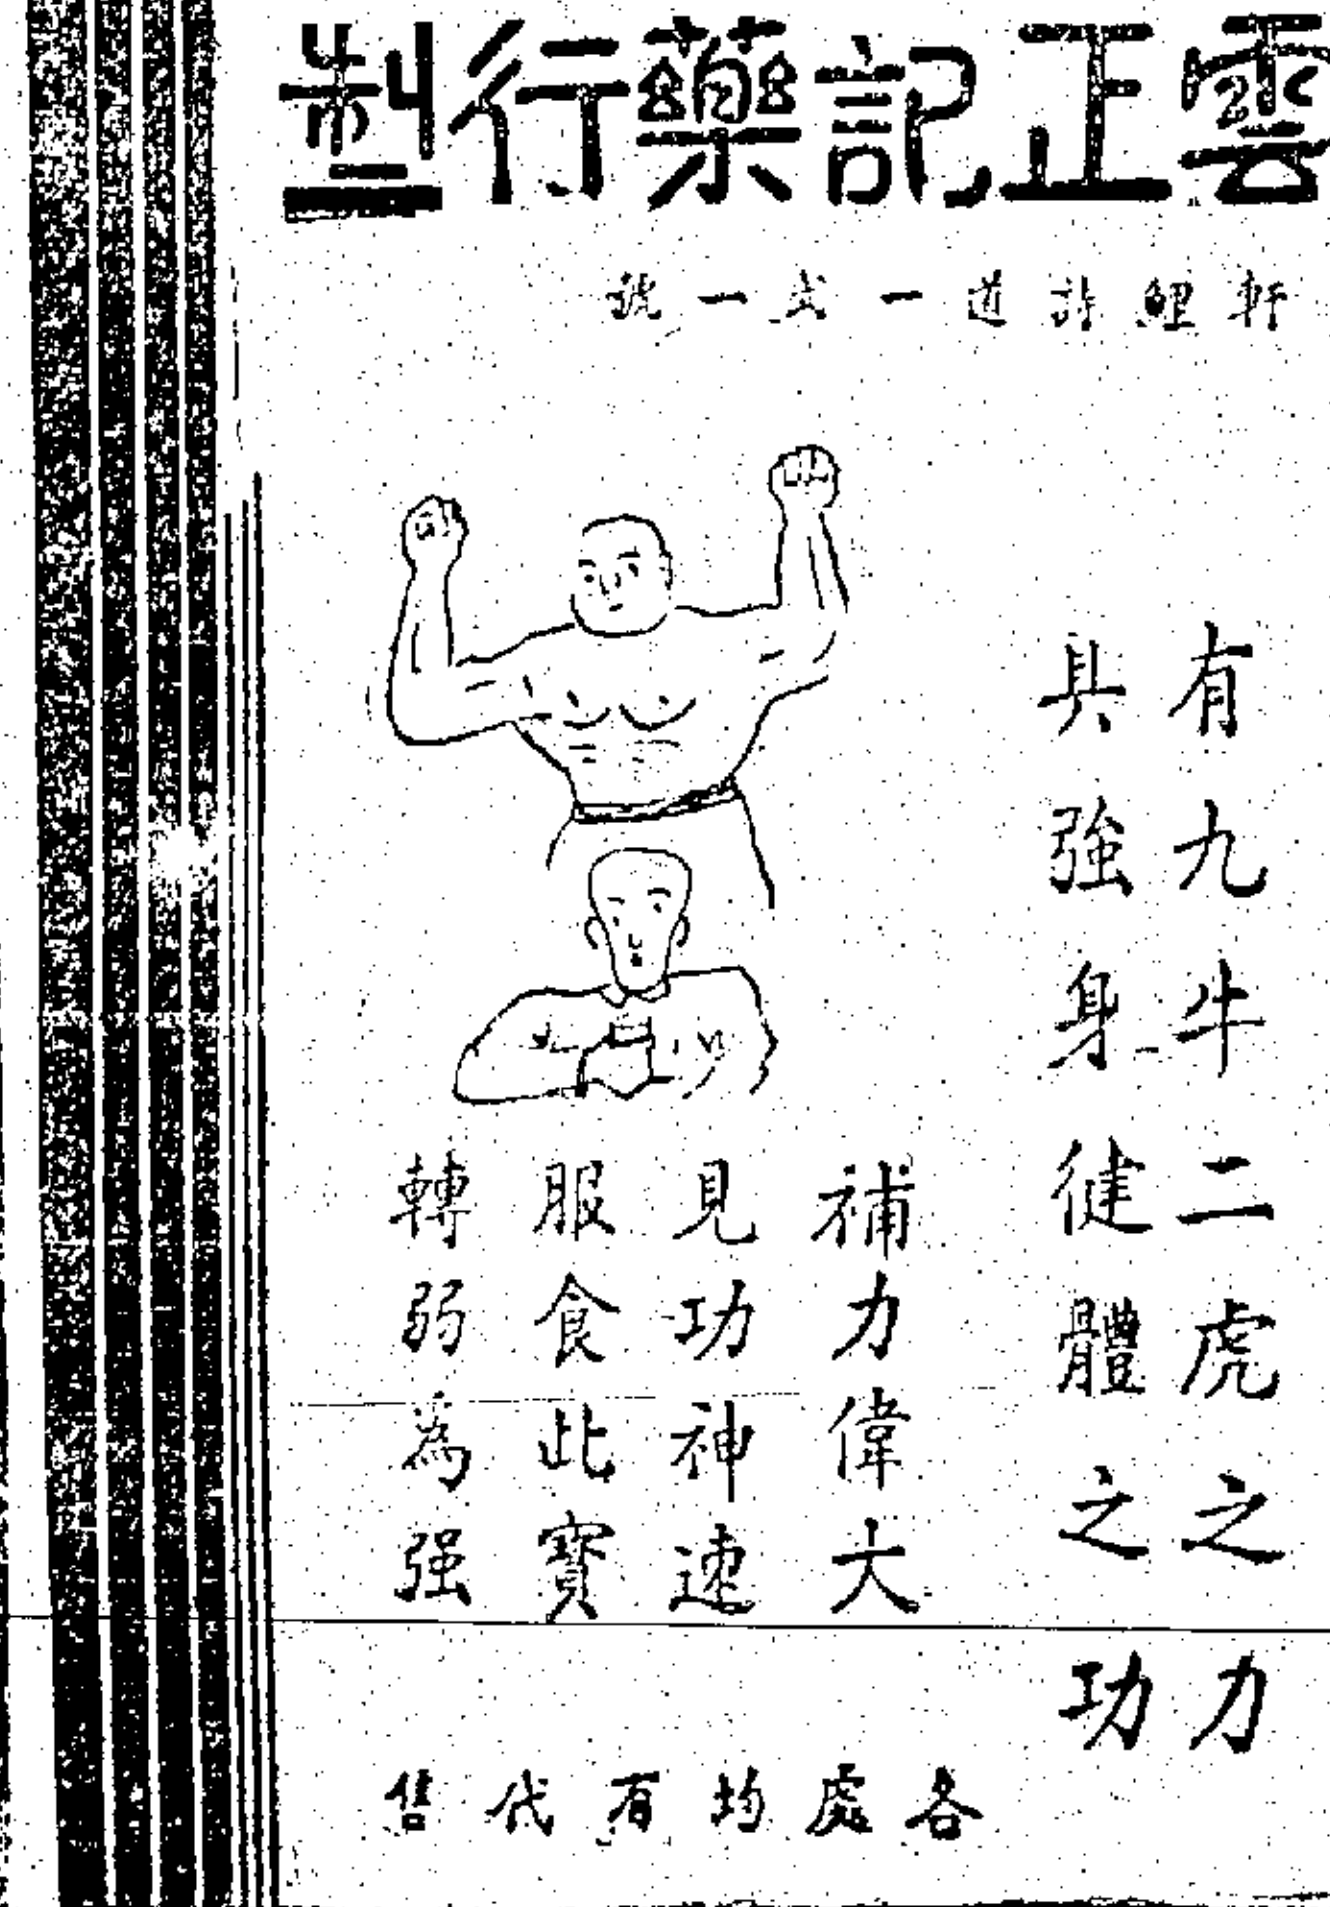 雲正記藥行製
軒鯉詩道一式一號
有九牛二虎之力
具強身健體之功
補力偉大
見功神速
服食此寶
轉弱為强
各處均有代售